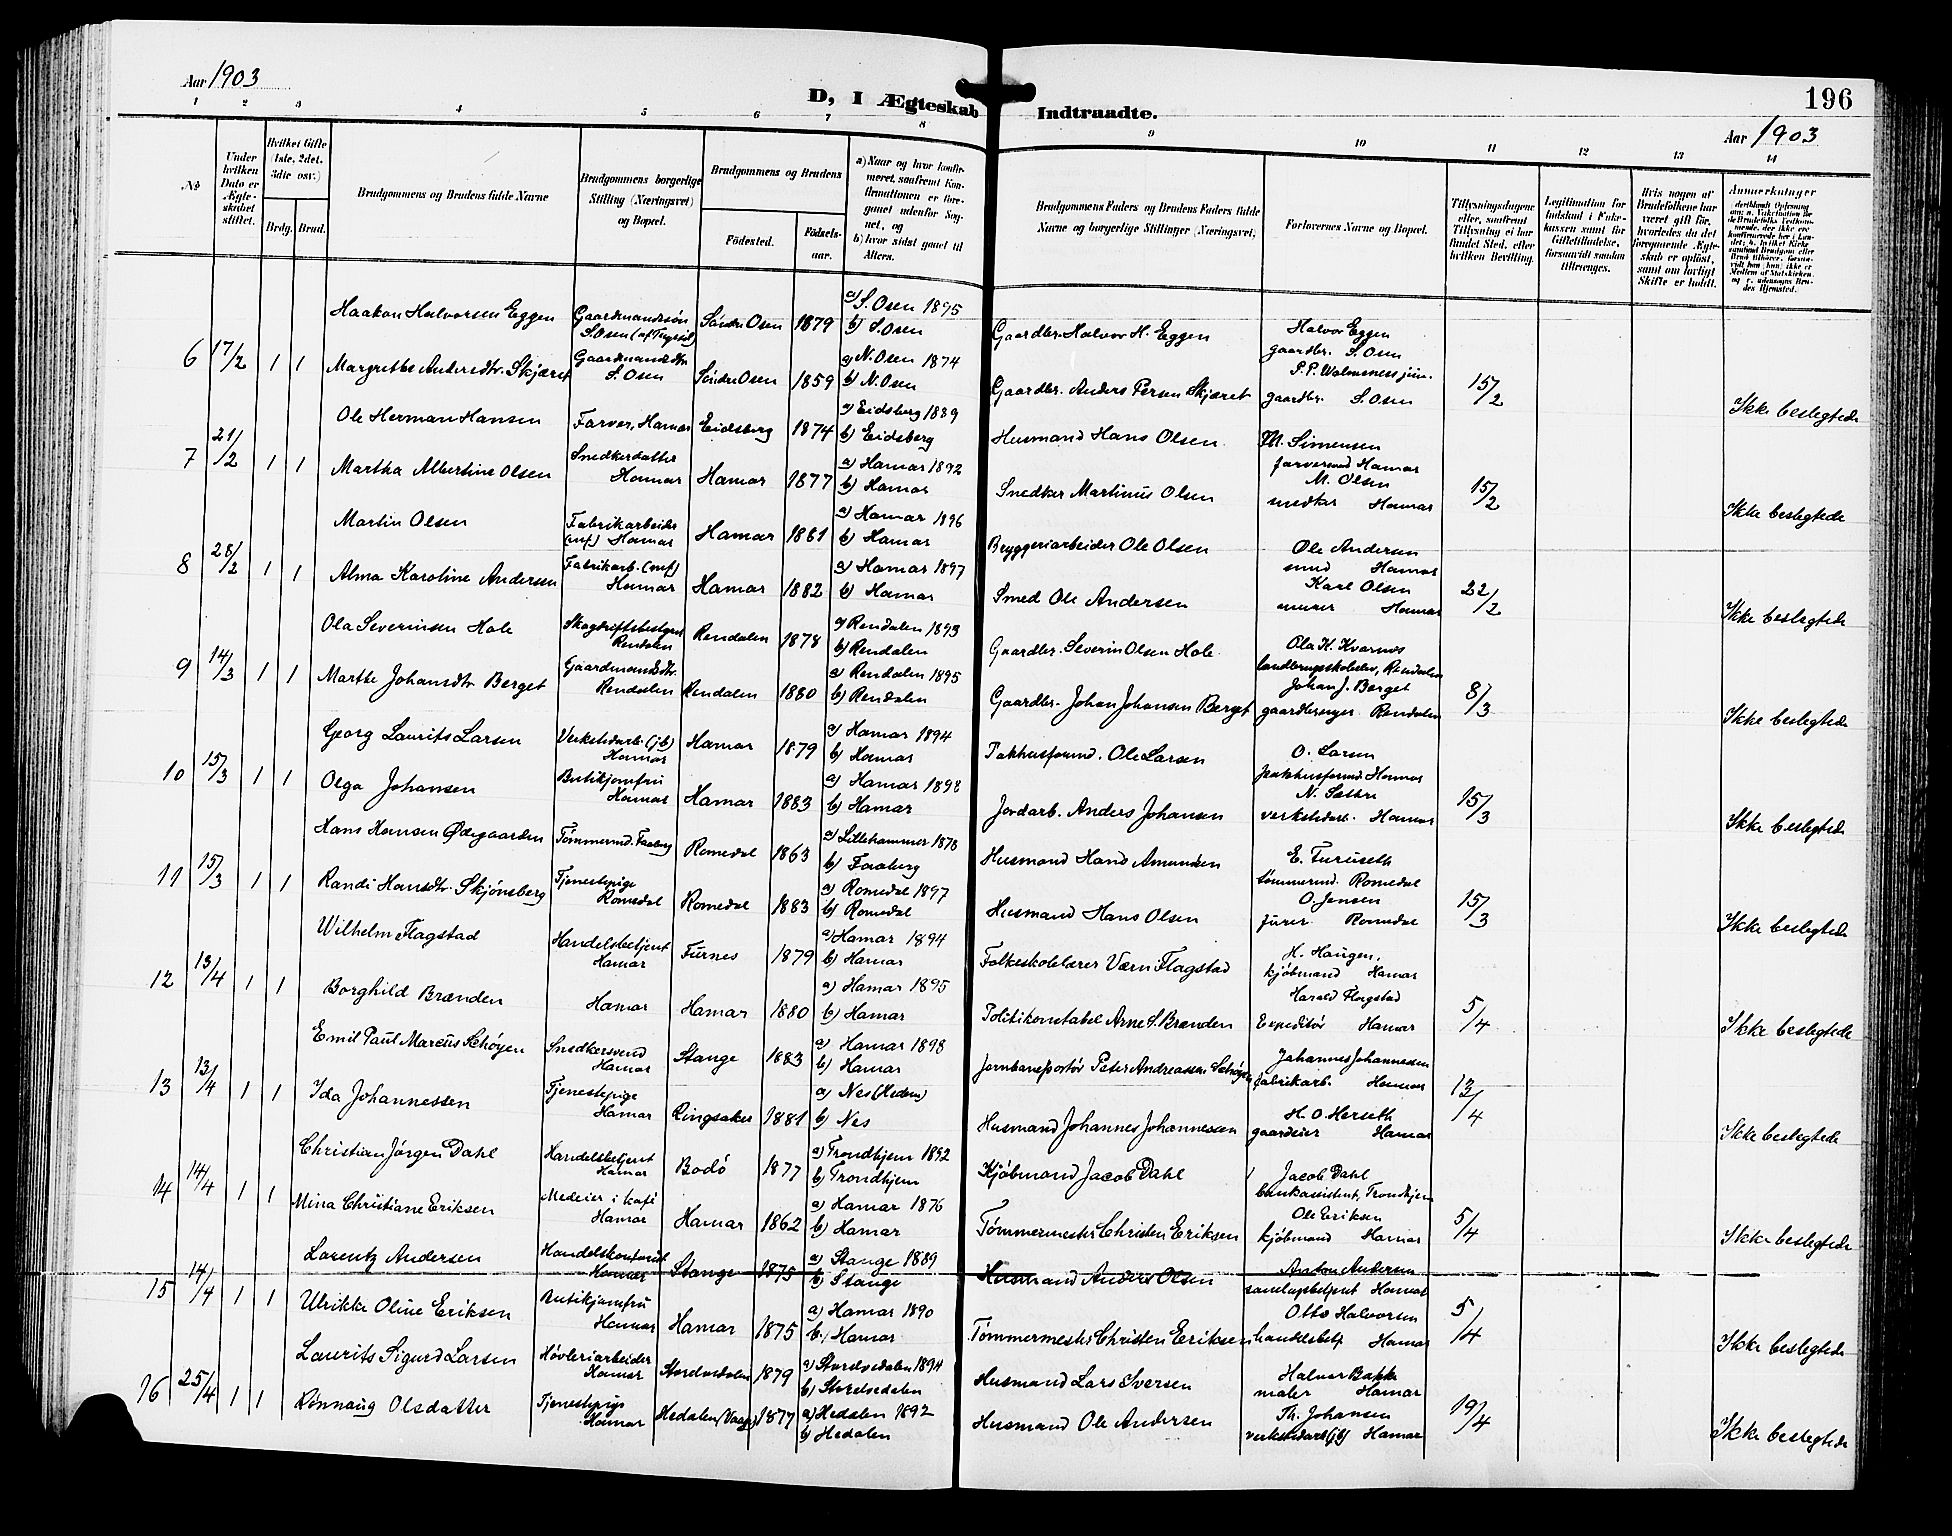 Aar 1903
D, I Ægteskab Indtraadte.
196
Aar 1903
1 2 3 4 5 6 7 8 9 10 11 12 13 14
No
Under hvilken Dato er Ægteskabet stiftet.
Hvilket Gifte (1ste, 2det, 3die osv.)
Brdg. Brud.
Brudgommens og Brudens fulde Navne
Brudgommens borgerlige Stilling (Næringsvei) og Bopæl.
Brudgommens og Brudens
Födested.
Födselsaar.
a) Naar og hvor konfirmeret, saafremt Konfirmationen er foregaaet udenfor Sognet, og
b) hvor sidst gaaet til Alters.
Brudgommens Faders og Brudens Faders fulde Navne og borgerlige Stillinger (Næringsvei)
Forlovernes Navne og Bopæl.
Tillysningsdagene eller, saafremt Tillysning ei har fundet Sted, efter hvilken Bevilling.
Legitimation for Indskud i Enkekassen samt for Giftetilladelse, forsaavidt saadan tiltrænges.
Hvis nogen af Brudefolkene har været gift før, hvorledes da det foregaaende Ægteskab er opløst, samt om lovligt Skifte er holdt.
Anmærkninger
6 17/2 1 1
Haakon Halvorsen Eggen Gaardmandssön S. Osen (af Trysil) Söndre Osen 1879 a) S. Osen 1895 b) S. Osen Gaardbr. Halvor H. Eggen Halvor Eggen gaardbr. S. Osen
Margrethe Andersdtr. Skjæret Gaardmandsdtr. S. Osen Söndre Osen 1859 a) N. Osen 1874 b) N. Osen Gaardbr. Anders Persen Skjæret gaardbr. S. Osen 15/2 Ikke beslegtede
7 21/2 1 1
Ole Herman Hansen Farver, Hamar Eidsberg 1874 a) Eidsberg 1889 b) Eidsberg Husmand Hans Olsen M. Simensen farversvend Hamar
Martha Albertine Olsen Snedkerdatter Hamar Hamar 1877 a) Hamar 1892 b) Hamar Snedker Martinus Olsen M. Olsen snedker Hamar 15/2 Ikke beslegtede
8 28/2 1 1
Martin Olsen Fabrikarbeider Hamar Hamar 1881 a) Hamar 1896 b) Hamar Bryggeriarbeider Ole Olsen Ole Andersen smed Hamar
Alma Karoline Andersen Fabrikarb. Hamar Hamar 1882 a) Hamar 1897 b) Hamar Smed Ole Andersen Karl Olsen murer Hamar 22/2 Ikke beslegtede
9 14/3 1 1
Ola Severinsen Hole Skogdriftsbestyrer Rendalen Rendalen 1878 a) Rendalen 1893 b) Rendalen Gaardbr. Severin Olsen Hole Ola H. Kvarnes landbrugsskoleelev, Rendalen
Marthe Johansdtr Berget Gaardmandsdtr. Rendalen Rendalen 1880 a) Rendalen 1895 b) Rendalen Gaardbr. Johan Johansen Berget Johan J. Berget gaardbruger Rendalen 8/3 Ikke beslegtede
10 15/3 1 1
Georg Laurits Larsen Verkstedarb. (jb) Hamar Hamar 1879 a) Hamar 1894 b) Hamar Pakhusformd. Ole Larsen O. Larsen pakhusformd Hamar
Olga Johansen Butikjomfru Hamar Hamar 1883 a) Hamar 1898 b) Hamar Jordarb. Anders Johansen N. Sættre verkstedarb. Hamar 15/3 Ikke beslegtede
11 15/3 1 1
Hans Hansen Ødegaarden Tømmermd. Faaberg Romedal 1863 a) Lillehammer 1878 b) Faaberg Husmand Hans Amundsen E. Furuseth tømmermd. Romedal
Randi Hansdtr. Skjønsberg Tjenestepige Romedal Romedal 1883 a) Romedal 1897 b) Romedal Husmand Hans Olsen O. Jensen Romedal 15/3 Ikke beslegtede
12 13/4 1 1
Wilhelm Flagstad Handelsbetjent Hamar Furnes 1879 a) Hamar 1894 b) Hamar Folkeskolelærer Værn. Flagstad H. Haugen, kjøbmand Hamar
Borghild Brænden Hamar Hamar 1880 a) Hamar 1895 b) Hamar Politikonstabel Arne S. Brænden Harald Flagstad Expeditør Hamar 5/4 Ikke beslegtede
13 13/4 1 1
Emil Paul Marcus Schøyen Snedkersvend Hamar Stange 1883 a) Hamar 1898 b) Hamar Jernbaneportør Peter Andreassen Schøyen Johannes Johannessen fabrikarb. Hamar
Ida Johannessen Tjenestepige Hamar Ringsaker 1881 a) Nes (Hedem) b) Nes Husmand Johannes Johannessen H. O. Herseth gaardeier Hamar 13/4 Ikke beslegtede
14 14/4 1 1
Christian Jørgen Dahl Handelsbetjent Hamar Bodö 1877 a) Trondhjem 1892 b) Trondhjem Kjöbmand Jacob Dahl Jacob Dahl bankassistent, Trondhjem
Mina Christiane Eriksen Medeier i kafé Hamar Hamar 1862 a) Hamar 1876 b) Hamar Tømmermester Christen Eriksen Ole Eriksen kjøbmand Hamar 5/4 Ikke beslegtede
15 14/4 1 1
Lorentz Andersen Handelskontorist Hamar Stange 1875 a) Stange 1889 b) Stange Husmand Anders Olsen Anton Andersen samlagsbetjent Hamar
Ulrikke Oline Eriksen Butikjomfru Hamar Hamar 1875 a) Hamar 1890 b) Hamar Tømmermester Christen Eriksen Otto Halvorsen handelsbetj. Hamar 5/4 Ikke beslegtede
16 25/4 1 1
Laurits Sigurd Larsen Høvleriarbeider Hamar Stordvedalen 1879 a) Stordvedalen 1894 b) Storelvedalen Husmand Lars Iversen Halvor Bakke maler Hamar
Rønnaug Olsdatter Tjenestepige Hamar Hedalen (Vaage) 1877 a) Hedalen 1892 b) Hedalen Husmand Ole Andersen Th. Johansen verkstedarb (jb) Hamar 19/4 Ikke beslegtede